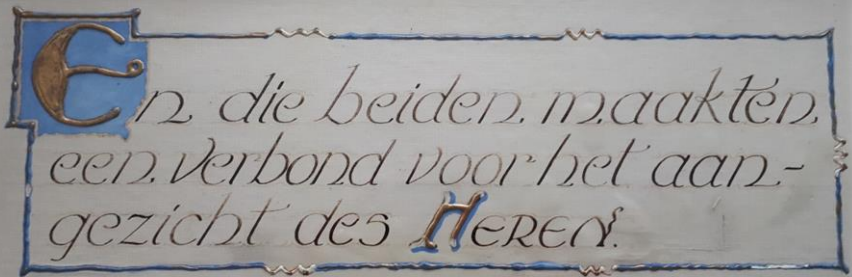 En die beiden maakten
een verbond voor het aan-
gezicht des HEREN.